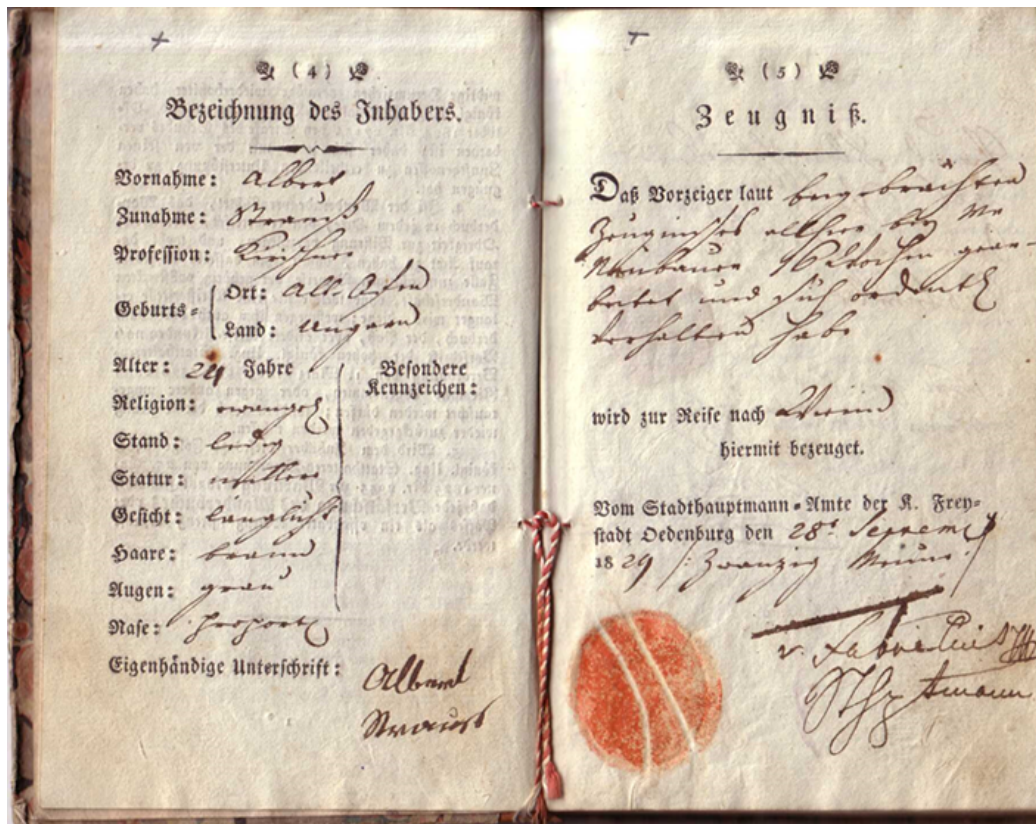 ( 4 )
Bezeichnung des Inhabers.
Vornahme: Albert
Zunahme: Strauß
Profession:
Geburts-
Ort: Alt Ofen
Land: Ungarn
Alter: 24 Jahre
Besondere
Kennzeichen:
Religion: evangel
Stand: ledig
Statur: mittlere
Gesicht: länglicht
Haare: braun
Augen: grau
Nase: proport
Eigenhändige Unterschrift:
Albert
Strauss
( 5 )
Zeugniß.
Daß Vorzeiger laut beygebrachten
Zeugnisses allhier bey
Neubauer 16 Wochen gear
beitet und sich ordentl
verhalten habe
wird zur Reise nach Wien
hiermit bezeuget.
Vom Stadthauptmann-Amte der K. Frey-
stadt Oedenburg den 28t Septem
1829 /: Zwanzig Neun :/
v.
Sthptmann